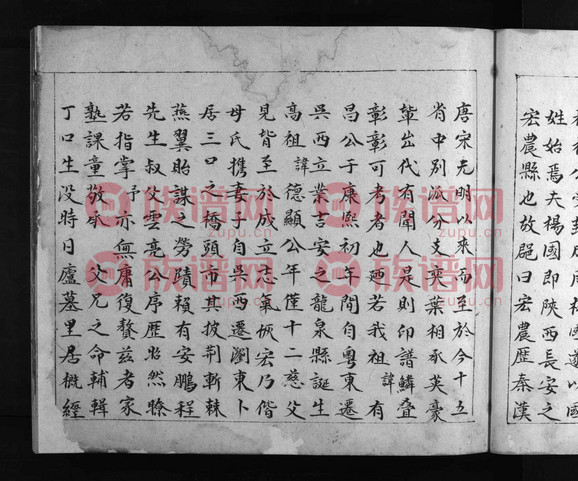 國
姓始焉夫楊國即陝西長安之
宏農縣也故郡曰宏農歷秦漢
唐宋元明以來而至於今十五
省中別派分支奕葉相承英豪
輩出代有聞人是則印譜鱗叠
彰彰可考者也迺若我祖諱有
昌公于康熙初年間自粵東遷
吳西立業吉安之龍泉縣誕生
高祖諱德顯公年僅十二慈父
見背至於成立志氣恢宏乃偕
母氏携妻自吳西遷瀏東卜
居三口之橋頭市其披荆斬棘
燕翼貽謀之勞蹟賴有安鵬程
先生叔父雲亮公序歷昭然瞭
若指掌予亦無庸復贅茲者家
塾課童敬承父兄之命輔輯
丁口生没時日廬墓里居概經
族谱网
zupu.cn
族谱网
zupu.cn
族谱网
zupu.cn
族谱网
zupu.cn